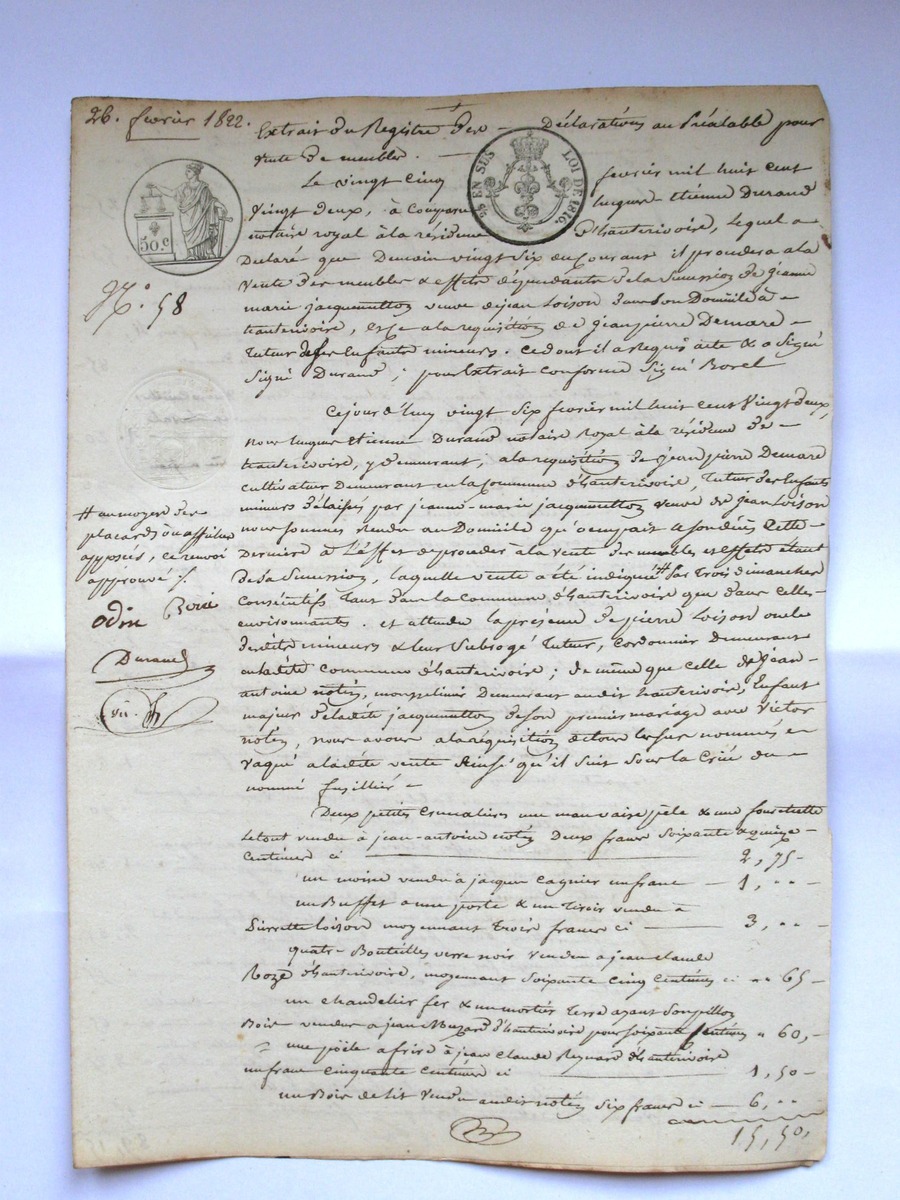 26. fevrier 1822.
Extrait du Registre des Déclarations au Préalable pour
vente de meubles.
Le vingt cinq fevrier mil huit cent
vingt deux, à Comparu hugues Etienne Durand
notaire royal à la résidence d'hauterivoire, lequel a
Declaré que Demain vingt six du Courant il procedera a la
vente des meubles & effets dépendants de la Sucession de jeanne
marie jacquemetton veuve de jean Loison dans son Domicile à
hauterivoire, Et ce a la requisition de jean pierre Demare
tuteur de ses Enfants mineurs. Ce dont il a Requis acte & a Signé
Signé Durand; pour Extrait conforme Signé Borel
50.C
45 EN SUS LOI DE 1816.
N.o 58
Cejourd'huy vingt six fevrier mil huit cent vingt deux,
nous hugues Etienne Durand notaire Royal à la résidence de
hauterivoire, y demeurant; a la requisition de jean pierre Demare
cultivateur Demeurant en la Commune d'hauterivoire, tuteur des Enfants
mineurs délaissés par jeanne-marie jacquemetton veuve de jean Loison
nous sommes rendu au Domicile qu'occupait a son décès Cette
Derniere à L'effet de proceder à la vente des meubles et effets étant
de sa Sucession, laquelle vente a été indiquée # par trois dimanches
Consécutifs tant dans la Commune d'hauterivoire que dans Celles
environnantes. et attendu la présence de pierre Loison oncle
desdits mineurs & leur Subrogé tuteur, Cordonnier demeurant
en ladite Commune d'hauterivoire; de même que celle de jean-
antoine notés, demeurant audit hauterivoire, Enfant
majeur de ladite jacquemetton de son premier mariage avec Victor
notés, nous avons a la réquisition de tous les sus nommés
vaqué a ladite vente Ainsi qu'il suit Sous la Criée du
nommé fusillié
# au moyen des
placards ou affiches
apposés, ce renvoi
approuvé /.
odin
Durand
Deux petits Cremalieres une mauvaise pèle & une fourchette
le tout vendu à jean-antoine notés Deux francs soixante & quinze
Centimes ci 2, 75
vendu à jacques Cagnier un franc 1, "
un Buffet a une porte & un tiroir vendu à
Pierrette Loison moyennant trois francs ci 3, "
quatre Bouteilles verre noir vendu à jean claude
Rozé d'hauterivoire, moyennant soixante cinq Centimes ci " 65
un chandelier fer & un mortier terre ayant Son pillon
Bois vendu a jean Buzard d'hauterivoire pour soixante Centimes " 60,
une poële a frire à jean claude Reynard d'hauterivoire
un franc Cinquante Centimes ci 1, 50
un Bois de lit vendu audit notés six francs ci 6, "
15, 50,